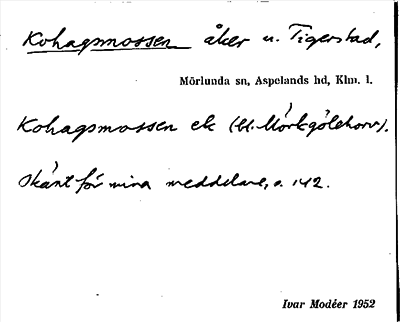 Kohagsmossen åker u. Tigerstad,
Mörlunda sn, Aspelands hd, Klm. l.
Kohagsmossen ek (bl. Mörkgölehorv).
Okänt för mina meddelare, s. 142.
Ivar Modéer 1952